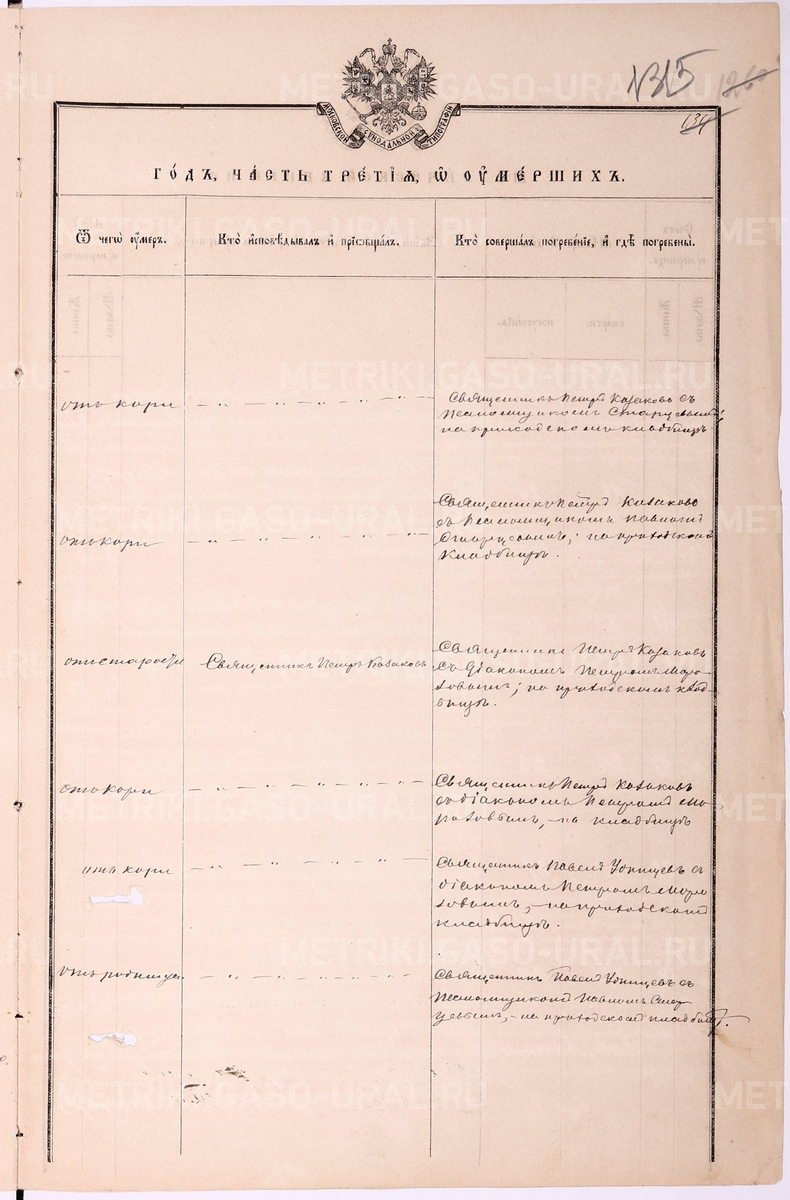 № 315
126
134
МОСКОВСКОЙ СѴНОДАЛЬНОЙ ТИПОГРАФІИ
ГО́ДЪ, ЧА́СТЬ ТРЕ́ТІЯ, Ѿ ОУ҆МЕ́РШИХЪ.
Ѿ чегѡ̀ оу҆́меръ.
Кто̀ и҆сповѣ́дывалъ и҆ пріѡбща́лъ.
Кто̀ соверша́лъ погребе́ніе, и҆ гдѣ̀ погребены̀.
отъ кори
Священникъ Петръ Казаковъ съ
Псаломщикомъ Старцевымъ;
на приходскомъ кладбищѣ
отъ кори
Священникъ Петръ Казаковъ
съ Псаломщикомъ Павломъ
Старцевымъ; на приходскомъ
кладбищѣ.
отъ старости
Священникъ Петръ Казаковъ
Священникъ Петръ Казаковъ
съ Діакономъ Петромъ Моро
зовымъ; на приходскомъ клад
бищѣ.
отъ кори
Священникъ Петръ Казаковъ
съ діакономъ Петромъ Мо
розовымъ, на кладбищѣ
отъ кори
Священникъ Павелъ съ
діакономъ Петромъ Моро
зовымъ, на приходскомъ
кладбищѣ.
отъ родимца
Священникъ Павелъ съ
Псаломщикомъ Павломъ Стар
цевымъ, на приходскомъ кладбищѣ.
METRIKI.GASO-URAL.RU